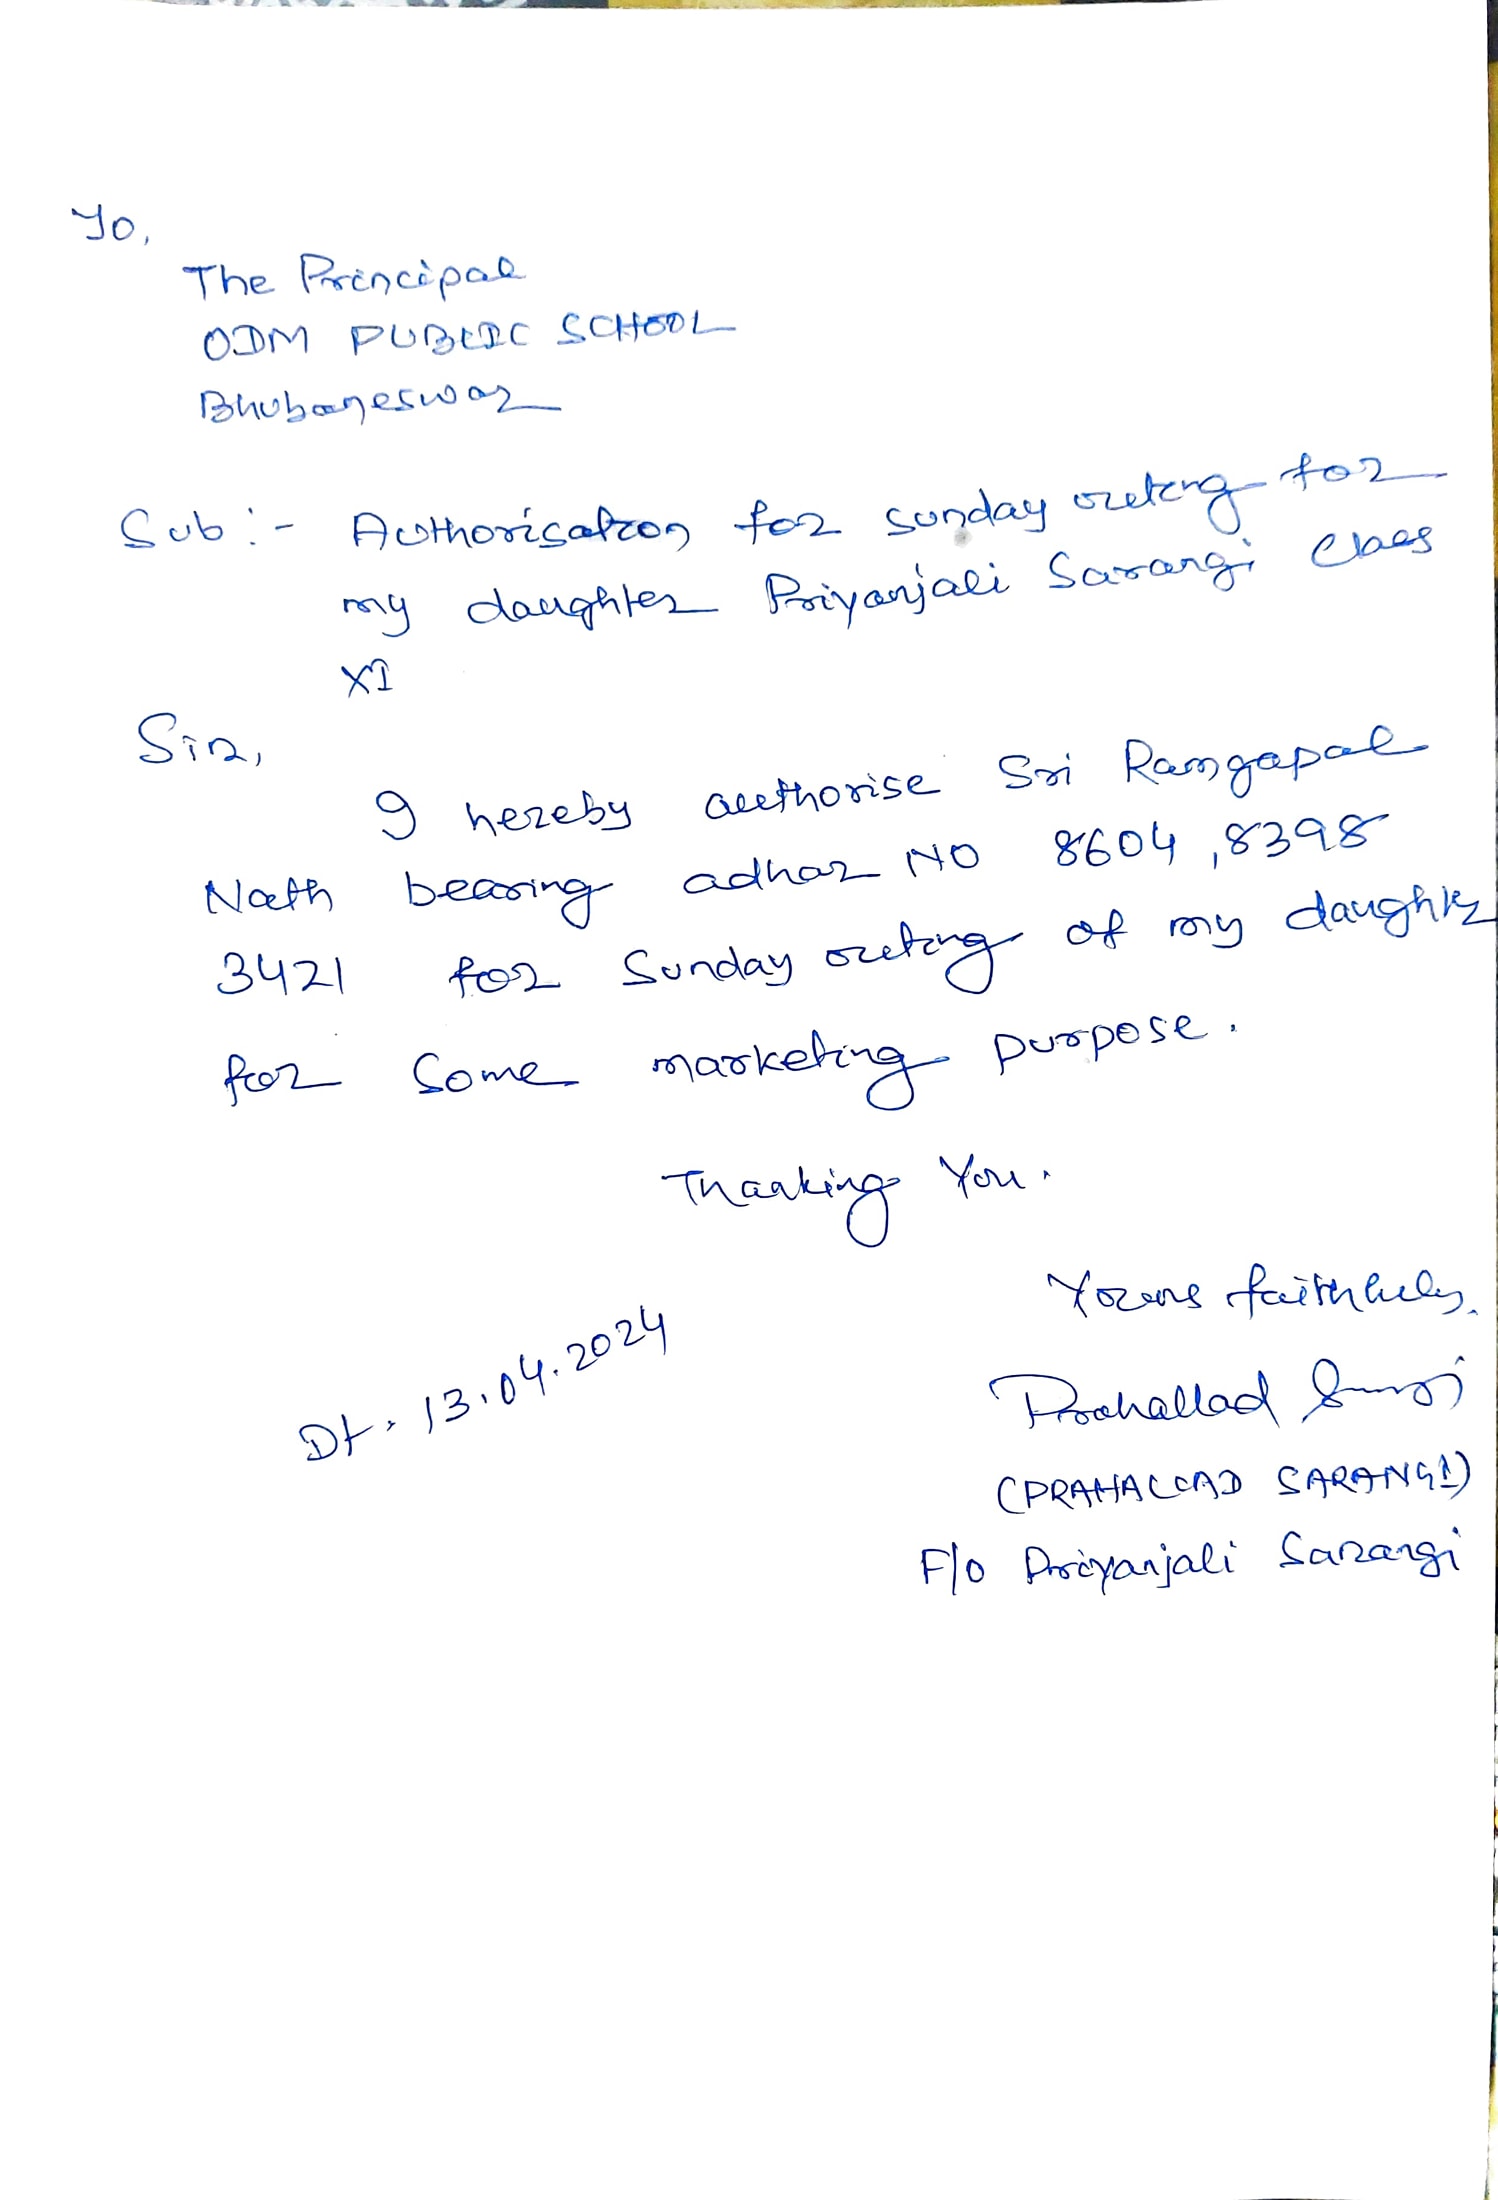 To,
The Principal
ODM PUBLIC SCHOOL
Bhubaneswar
Sub :- Authorisation for sunday outing for
my daughter Priyanjali Sarangi Class
XI
Sir,
I hereby authorise Sri Ramgapal
Nath bearing adhar NO 8604, 8398
3421 for Sunday outing of my daughter
for Some marketing purpose.
Thanking You.
Yours faithfully.
Dt. 13.04.2024
Prahallad
(PRAHALLAD SARANGI)
F/o Priyanjali Sarangi